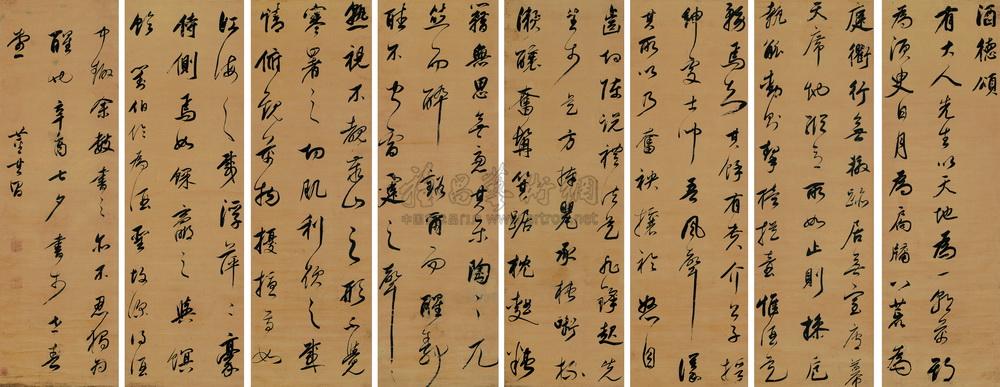 酒德頌
有大人先生以天地為一朝萬期
為須臾日月為扃牖八荒為
庭衢行無轍跡居無室廬幕
天席地縱意所如止則操卮
執觚動則挈榼提壺惟酒是
務焉知其餘有貴介公子搢
紳處士聞吾風聲議
其所以乃奮袂攘衿怒目
齒切陳說禮法是非鋒起先
生於是方捧罌承槽銜杯
漱醪奮髯箕踞枕麴藉
糟無思無慮其樂陶陶兀
然而醉豁爾而醒靜
聽不聞雷霆之聲
熟視不覩泰山之形不覺
寒暑之切肌利欲之感
情俯觀萬物擾擾焉如
江海之載浮萍二豪
侍側焉如蜾蠃之與螟
蛉 劉伯倫為酒聖故深得酒
中趣余數書之亦不忍獨為
醒也辛酉七夕書於世春
堂 董其昌